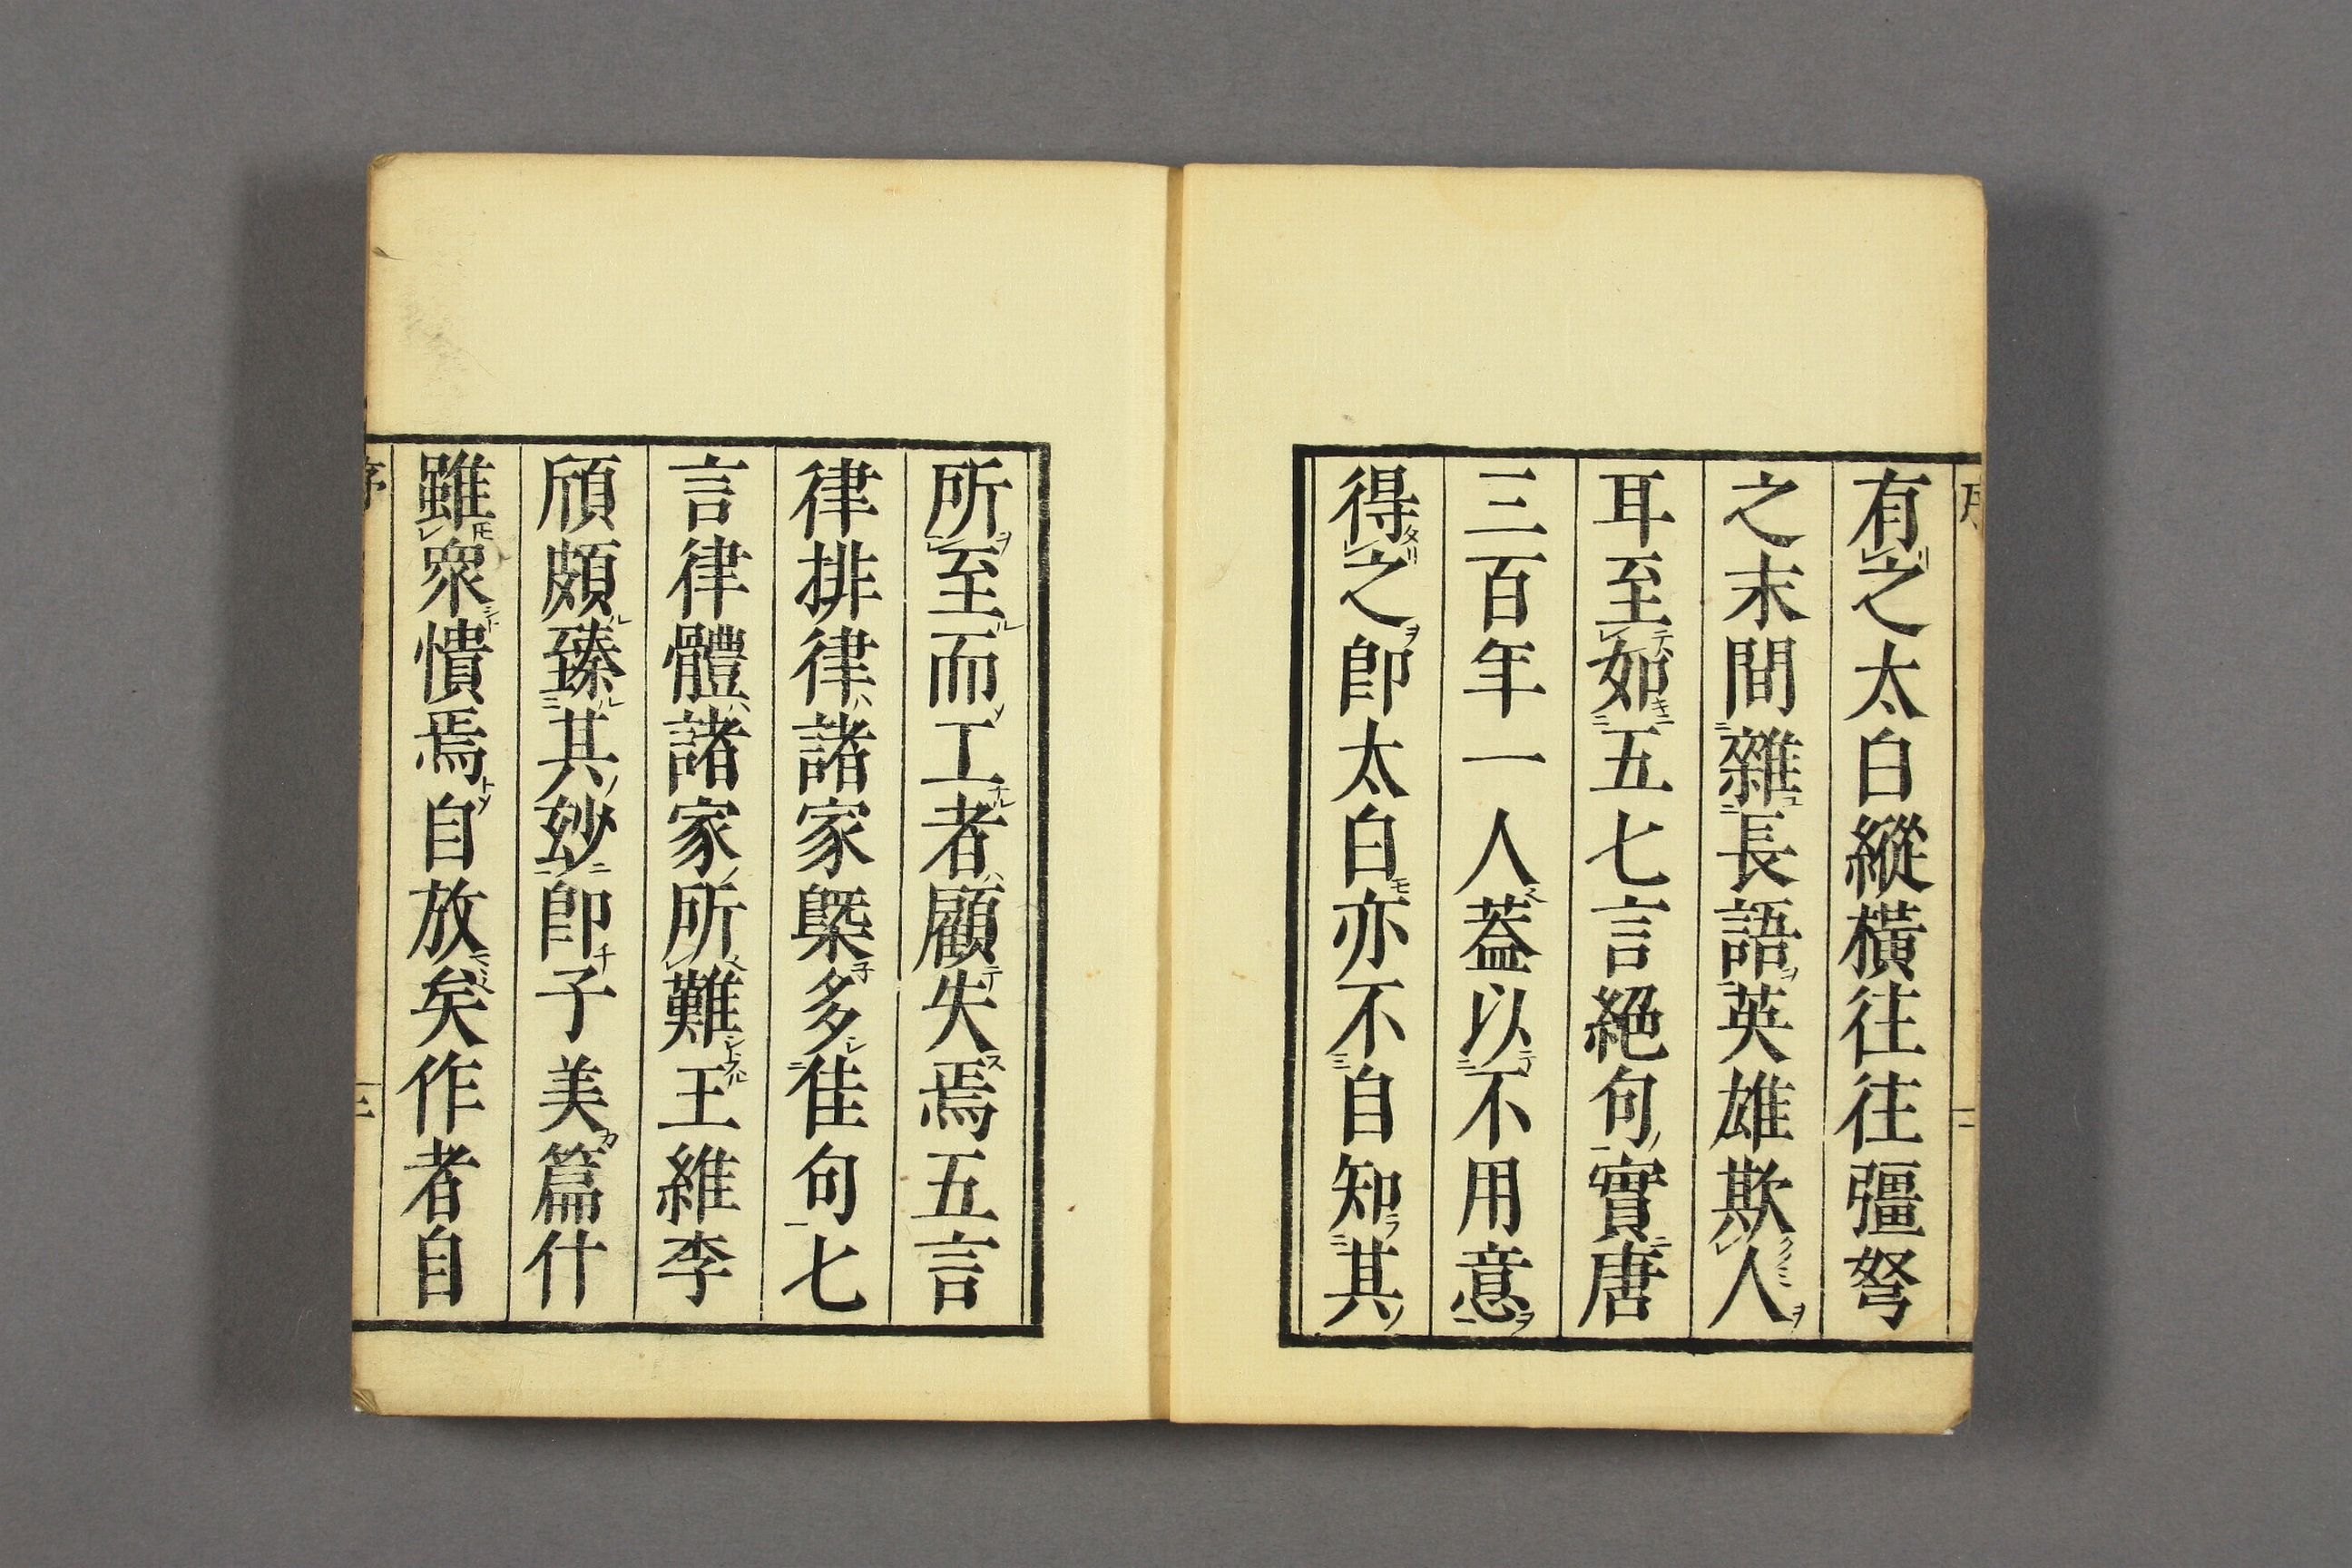 有之太白縱橫往往彊弩
之末間雜長語英雄欺人
耳至如五七言絕句實唐
三百年一人蓋以不用意
得之卽太白亦不自知其
所至而工者顧失焉五言
律排律諸家槩多佳句七
言律體諸家所難王維李
頎頗臻其玅卽子美篇什
雖眾憒焉自放矣作者自
序